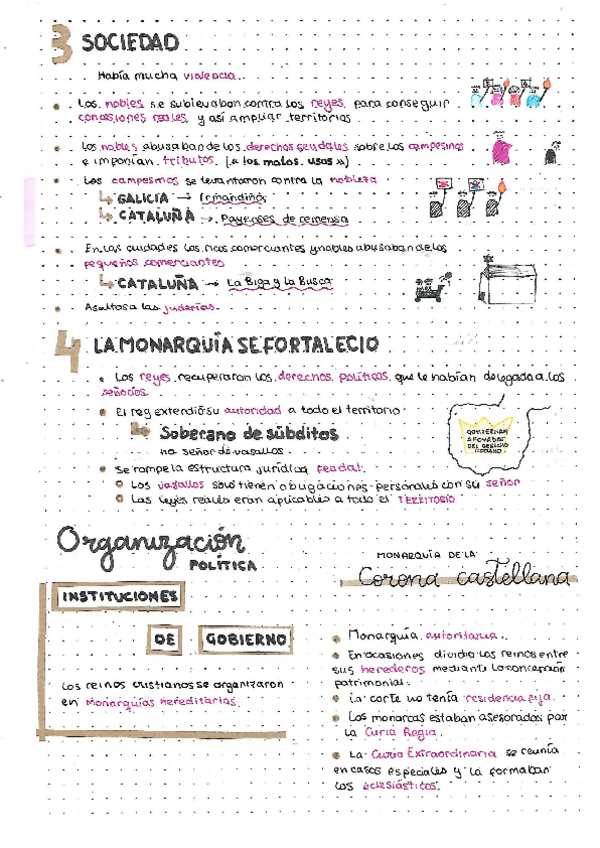 3 SOCIEDAD
Había mucha violencia.
Los nobles se sublevaban contra los reyes para conseguir
concesiones reales y así ampliar territorios.
Los nobles abusaban de los derechos feudales sobre los campesinos
e imponían tributos. (« los malos usos »)
Los campesinos se levantaron contra la nobleza
GALICIA → Irmandiña
CATALUÑA → Payenses de remensa
En las cuidades los ricos comerciantes y nobles abusaban de los
pequeños comerciantes
CATALUÑA → La Biga y la Busca
Asaltos a las juderías.
4 LA MONARQUÍA SE FORTALECIO
Los reyes recuperaron los derechos políticos que le habían delegado a los
señoríos
El rey extendió su autoridad a todo el territorio.
Soberano de súbditos
no señor de vasallos
Se rompe la estructura jurídica feudal.
Los vasallos solo tienen obligaciones personales con su señor
Las leyes reales eran aplicables a todo el TERRITORIO
GOBIERNAN
APOYADAS
DEL DERECHO
ROMANO
Organización
POLÍTICA
INSTITUCIONES
DE GOBIERNO
Los reinos cristianos se organizaron
en monarquías hereditarias.
MONARQUÍA DE LA
Corona castellana
Monarquía autoritaria.
En ocasiones dividía los reinos entre
sus herederos mediante la concepción
patrimonial.
La corte no tenía residencia fija.
Los monarcas estaban asesorados por
la Curia Regia.
La Curia Extraordinaria se reunía
en casos especiales y la formaban
los eclesiásticos.